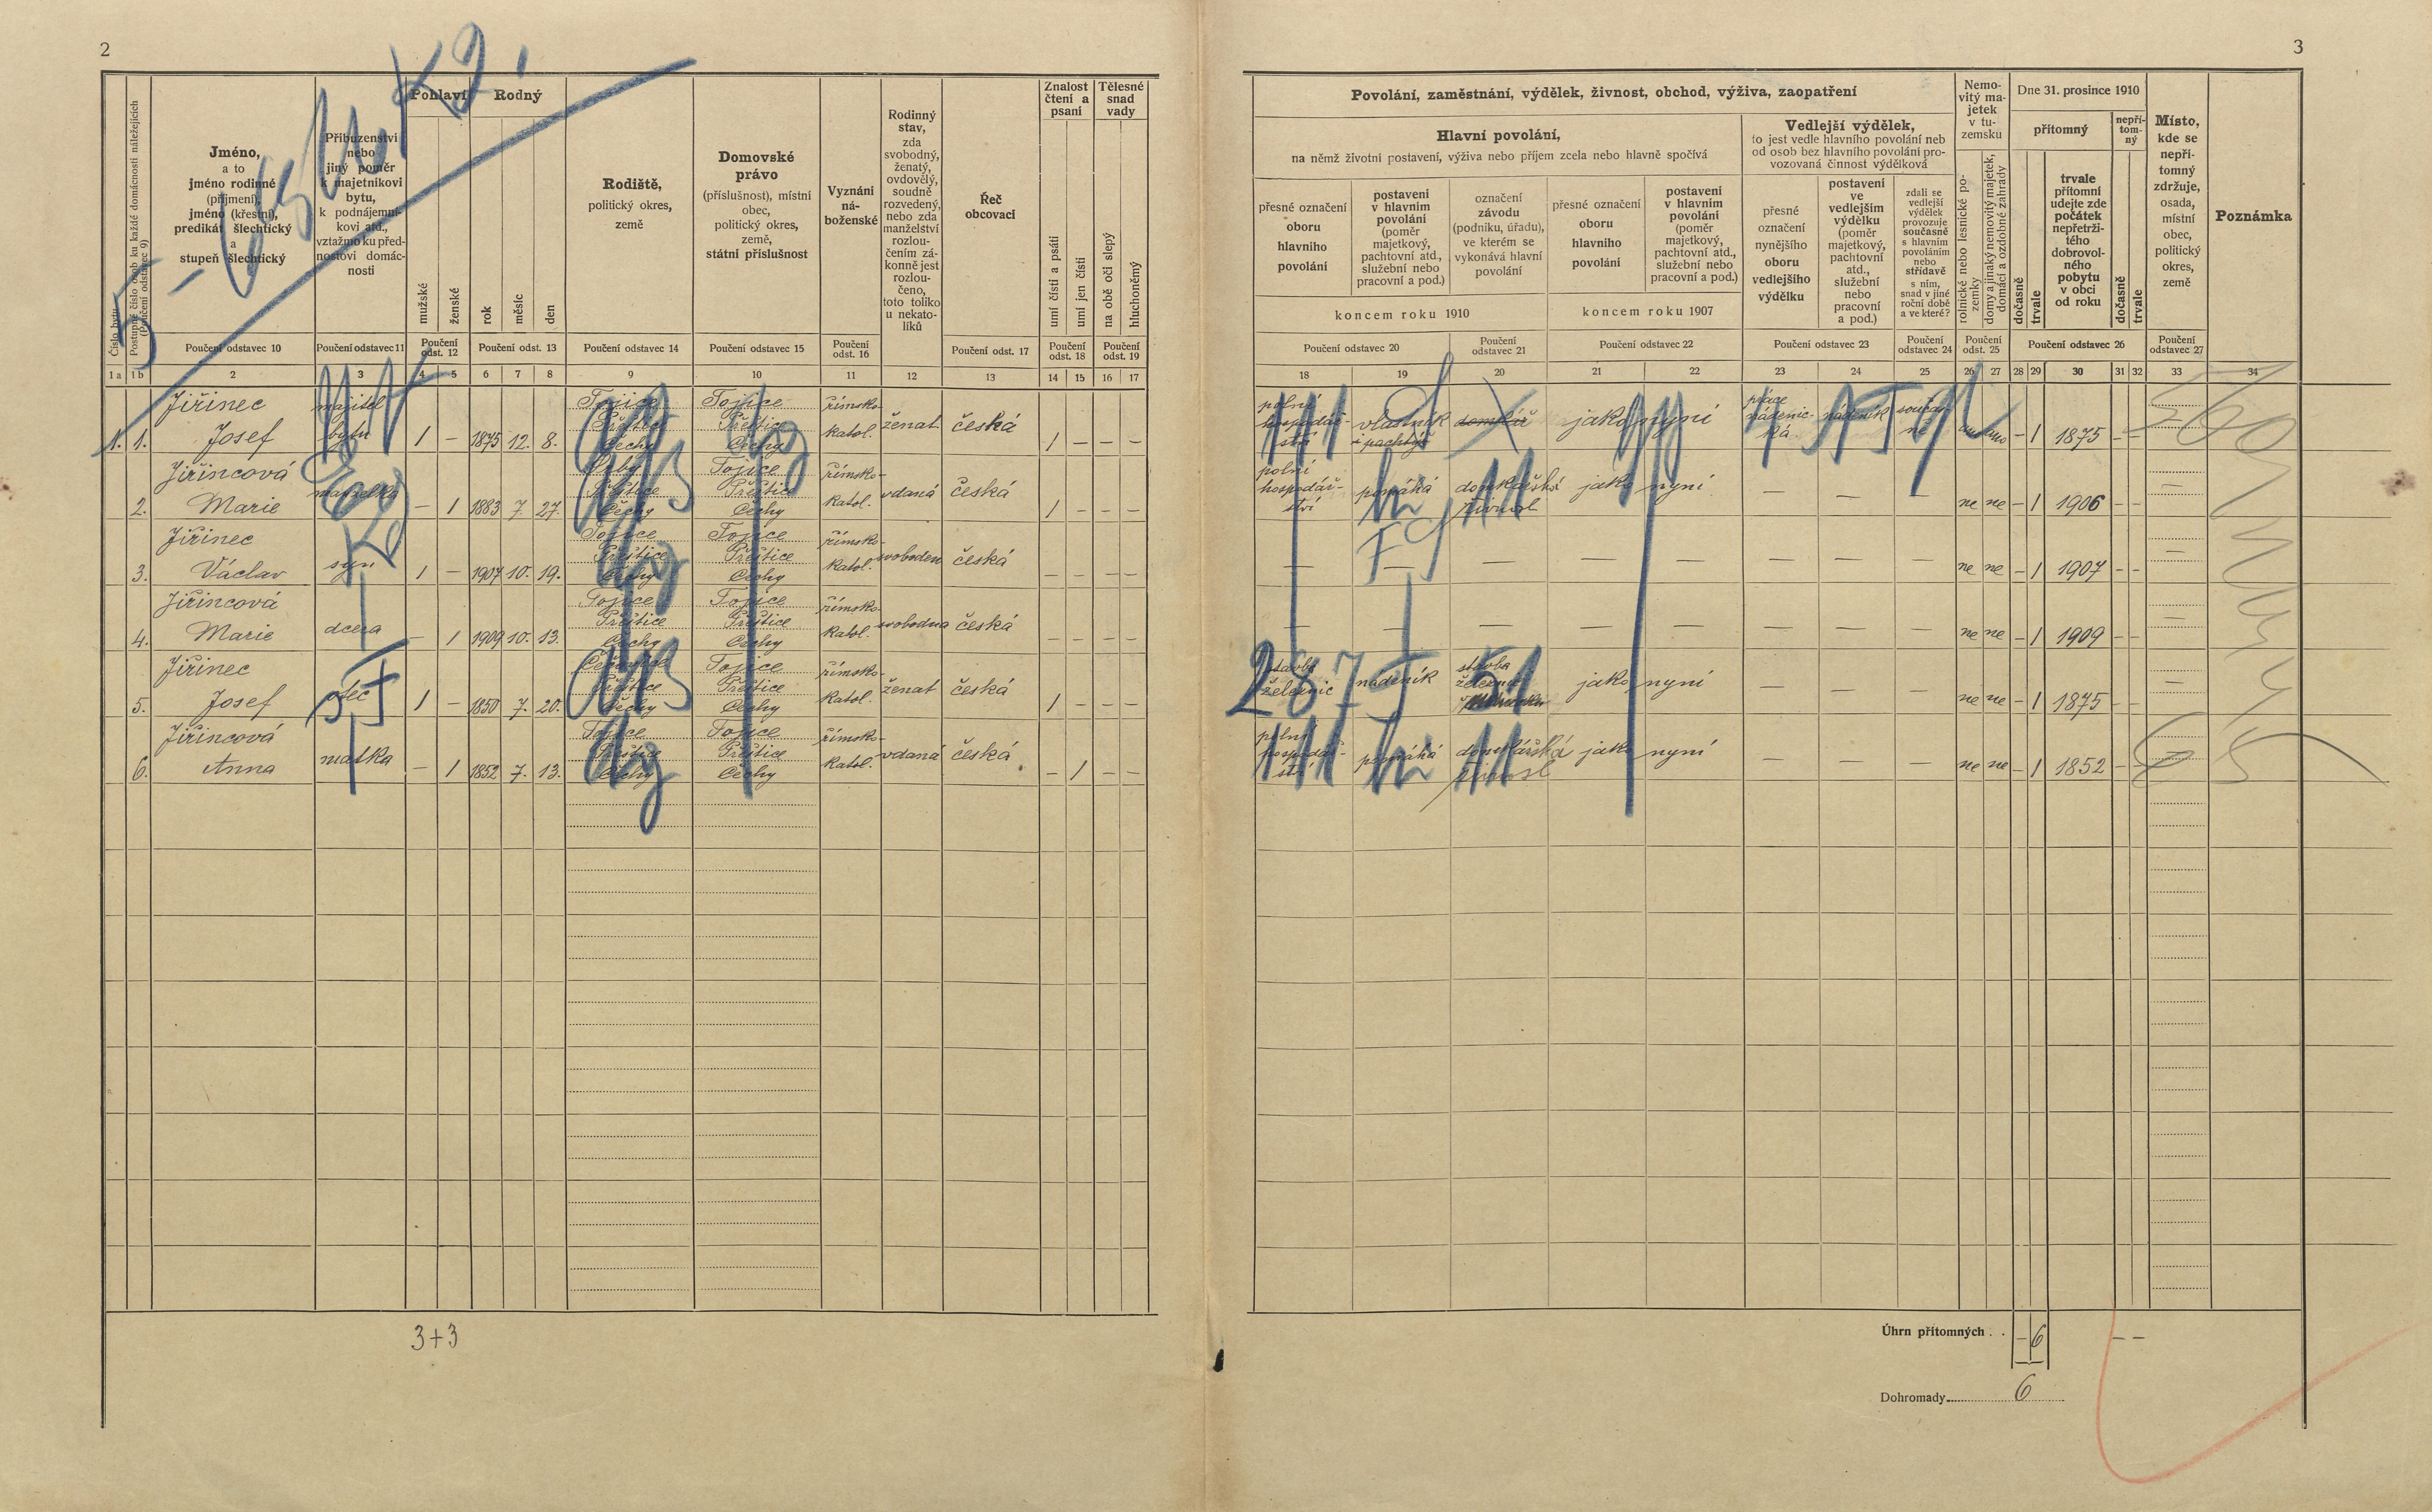 2
3
Číslo bytu
Postupné číslo osob ku každé domácnosti náležejících
(Poučení odstavec 9)
Jméno,
a to
jméno rodinné
(příjmení),
jméno (křestní),
predikát šlechtický
a
stupeň šlechtický
Příbuzenství
nebo
jiný poměr
k majetníkovi
bytu,
k podnájemní-
kovi atd.,
vztažmo ku před-
nostovi domác-
nosti
Pohlaví
mužské
ženské
Rodný
rok
měsíc
den
Rodiště,
politický okres,
země
Domovské
právo
(příslušnost), místní
obec,
politický okres,
země,
státní příslušnost
Vyznání
ná-
boženské
Rodinný
stav,
zda
svobodný,
ženatý,
ovdovělý,
soudně
rozvedený,
nebo zda
manželství
rozlou-
čením zá-
konně jest
rozlou-
čeno,
toto toliko
u nekato-
líků
Řeč
obcovací
Znalost
čtení a
psaní
umí čísti a psáti
umí jen čísti
Tělesné
snad
vady
na obě oči slepý
hluchoněmý
Poučení odstavec 10
Poučení odstavec 11
Poučení odst. 12
Poučení odst. 13
Poučení odstavec 14
Poučení odstavec 15
Poučení odst. 16
Poučení odst. 17
Poučení odst. 18
Poučení odst. 19
1a 1b 2 3 4 5 6 7 8 9 10 11 12 13 14 15 16 17
Povolání, zaměstnání, výdělek, živnost, obchod, výživa, zaopatření
Hlavní povolání,
na němž životní postavení, výživa nebo příjem zcela nebo hlavně spočívá
přesné označení
oboru
hlavního
povolání
postavení
v hlavním
povolání
(poměr
majetkový,
pachtovní atd.,
služební nebo
pracovní a pod.)
označení
závodu
(podniku, úřadu),
ve kterém se
vykonává hlavní
povolání
koncem roku 1910
přesné označení
oboru
hlavního
povolání
postavení
v hlavním
povolání
(poměr
majetkový,
pachtovní atd.,
služební nebo
pracovní a pod.)
koncem roku 1907
Vedlejší výdělek,
to jest vedle hlavního povolání neb
od osob bez hlavního povolání pro-
vozovaná činnost výdělková
přesné
označení
nynějšího
oboru
vedlejšího
výdělku
postavení
ve
vedlejším
výdělku
(poměr
majetkový,
pachtovní
atd.,
služební
nebo
pracovní
a pod.)
zdali se
vedlejší
výdělek
provozuje
současně
s hlavním
povoláním
nebo
střídavě
s ním,
snad v jiné
roční době
a ve které?
Nemo-
vitý ma-
jetek
v tu-
zemsku
rolnické nebo lesnické po-
zemky
domy a jinaký nemovitý majetek,
domácí a ozdobné zahrady
Dne 31. prosince 1910
přítomný
dočasně
trvale
trvale
přítomní
udejte zde
počátek
nepřetrži-
tého
dobrovol-
ného
pobytu
v obci
od roku
nepří-
tom-
ný
dočasně
trvale
Místo,
kde se
nepří-
tomný
zdržuje,
osada,
místní
obec,
politický
okres,
země
Poznámka
Poučení odstavec 20
Poučení odstavec 21
Poučení odstavec 22
Poučení odstavec 23
Poučení odstavec 24
Poučení odst. 25
Poučení odstavec 26
Poučení odstavec 27
18 19 20 21 22 23 24 25 26 27 28 29 30 31 32 33 34
Jiřinec majitel Tojice Tojice římsko-
1. 1. Josef bytu 1 – 1875 12. 8. Přeštice Čechy Přeštice Čechy katol. ženat česká 1 – – –
polní hospodář-ství vlastník i pachtýř domkář jako nyní práce nádenic-ká nádeník součas-ně ano ano – 1 1875 – –
Jiřincová Tojice římsko-
2. Marie manželka – 1 1883 7. 27. Přeštice Čechy Přeštice Čechy katol. vdaná česká 1 – – –
polní hospodář-ství pomáhá domkářská živnost jako nyní – – – ne ne – 1 1906 – – –
Jiřinec Tojice Tojice římsko-
3. Václav syn 1 – 1907 10. 19. Přeštice Čechy Přeštice Čechy katol. svoboden česká – – – –
– – – – – – – – ne ne – 1 1907 – – –
Jiřincová Tojice Tojice římsko-
4. Marie dcera – 1 1909 10. 13. Přeštice Čechy Přeštice Čechy katol. svobodna česká – – – –
– – – – – – – – ne ne – 1 1909 – – –
Jiřinec Tojice římsko-
5. Josef otec 1 – 1850 7. 20. Přeštice Čechy Přeštice Čechy katol. ženat česká 1 – – –
stavba železnic nádeník stavba železnic jako nyní – – – ne ne – 1 1875 – – –
Jiřincová Tojice Tojice římsko-
6. Anna matka – 1 1852 7. 13. Přeštice Čechy Přeštice Čechy katol. vdaná česká – 1 – –
polní hospodář-ství pomáhá domkářská živnost jako nyní – – – ne ne – 1 1852 – – –
3+3
Úhrn přítomných . . – 6 – –
Dohromady 6